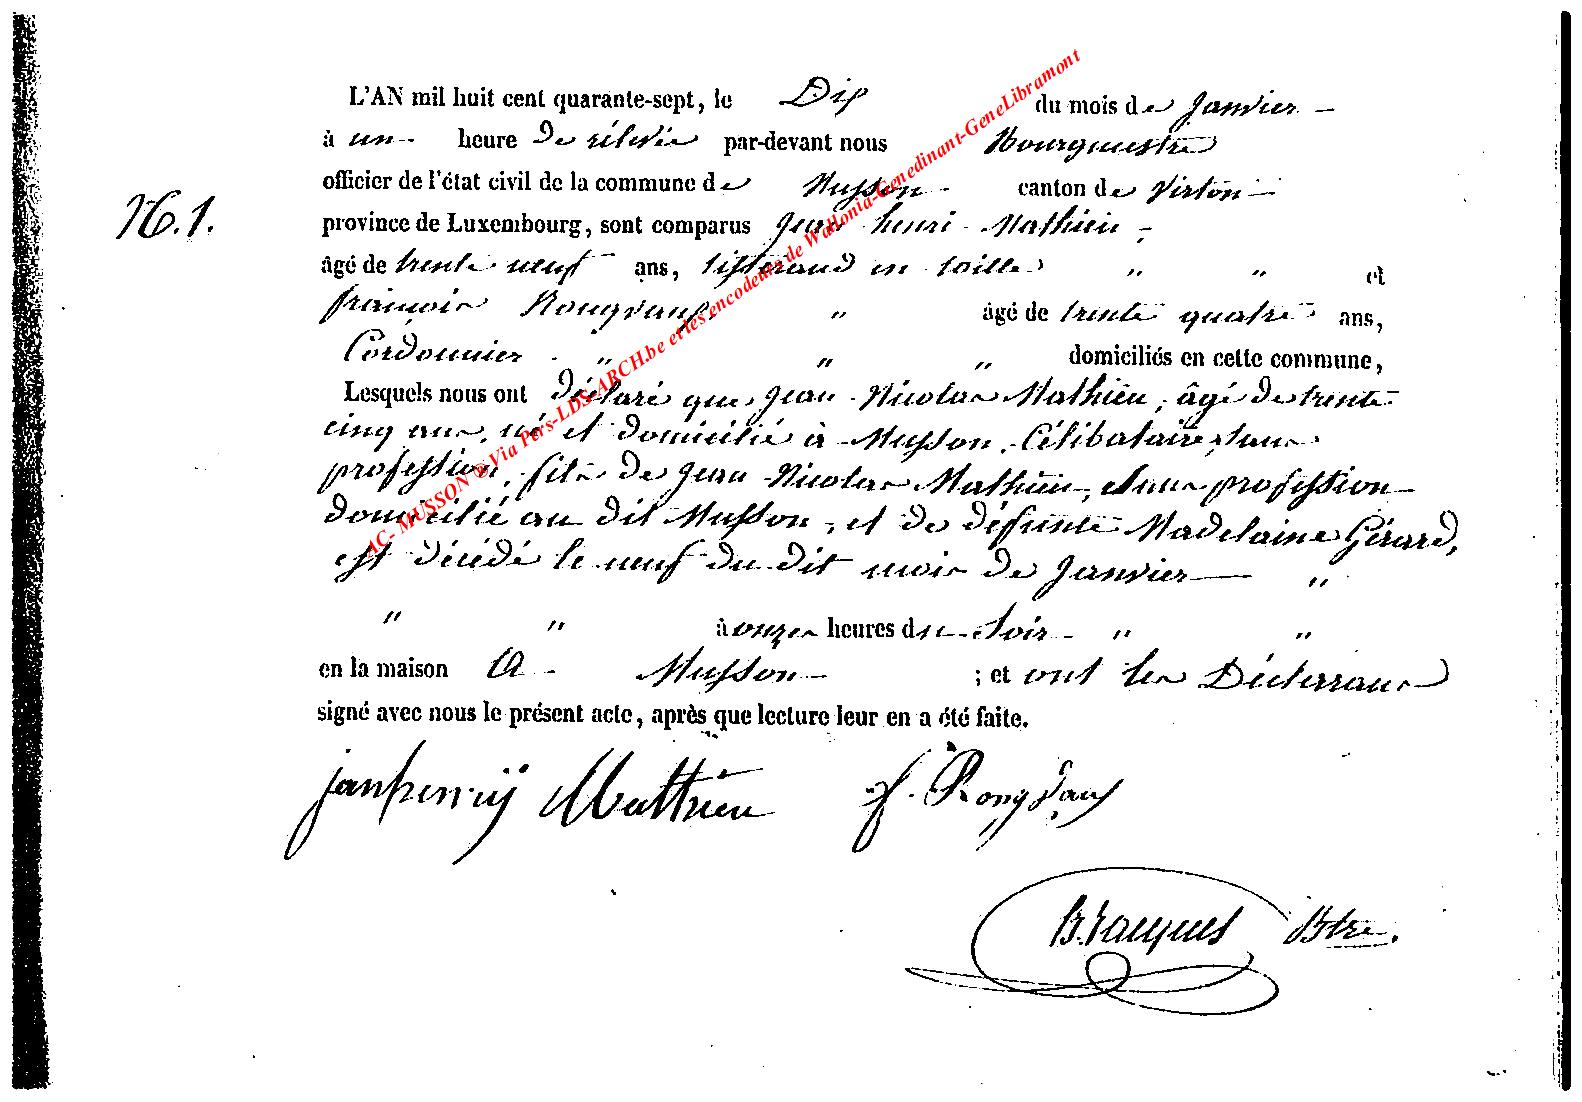 L'AN mil huit cent quarante-sept, le Dix du mois de Janvier
à une heure de rélévée par-devant nous Bourguestre
officier de l'état civil de la commune de Musson canton de Virton
N. 1. province de Luxembourg, sont comparus Jean henri Mathieu,
âgé de trente neuf ans, tisserand en toilles " " et
françois Rongvaux " âgé de trente quatre ans,
Cordonnier " " " domiciliés en cette commune,
Lesquels nous ont déclaré que Jean Nicolas Mathieu, âgé de trente
cinq ans, né et domicilié à Musson, Célibataire, sans
profession, fils de Jean Nicolas Mathieu, sans profession
domicilié au dit Musson, et de défunte Madelaine Gérard,
est décédé le neuf du dit mois de Janvier "
" " à onze heures du Soir " "
en la maison à Musson ; et ont les Déclarans
signé avec nous le présent acte, après que lecture leur en a été faite.
janhenrÿ Mathieu f. Rongvaux
B. Jacques Btre.
AC- MUSSON ® Via Pers-LDS-ARCH.be et les encodeurs de Wallonia-Genedinant-GeneLibramont